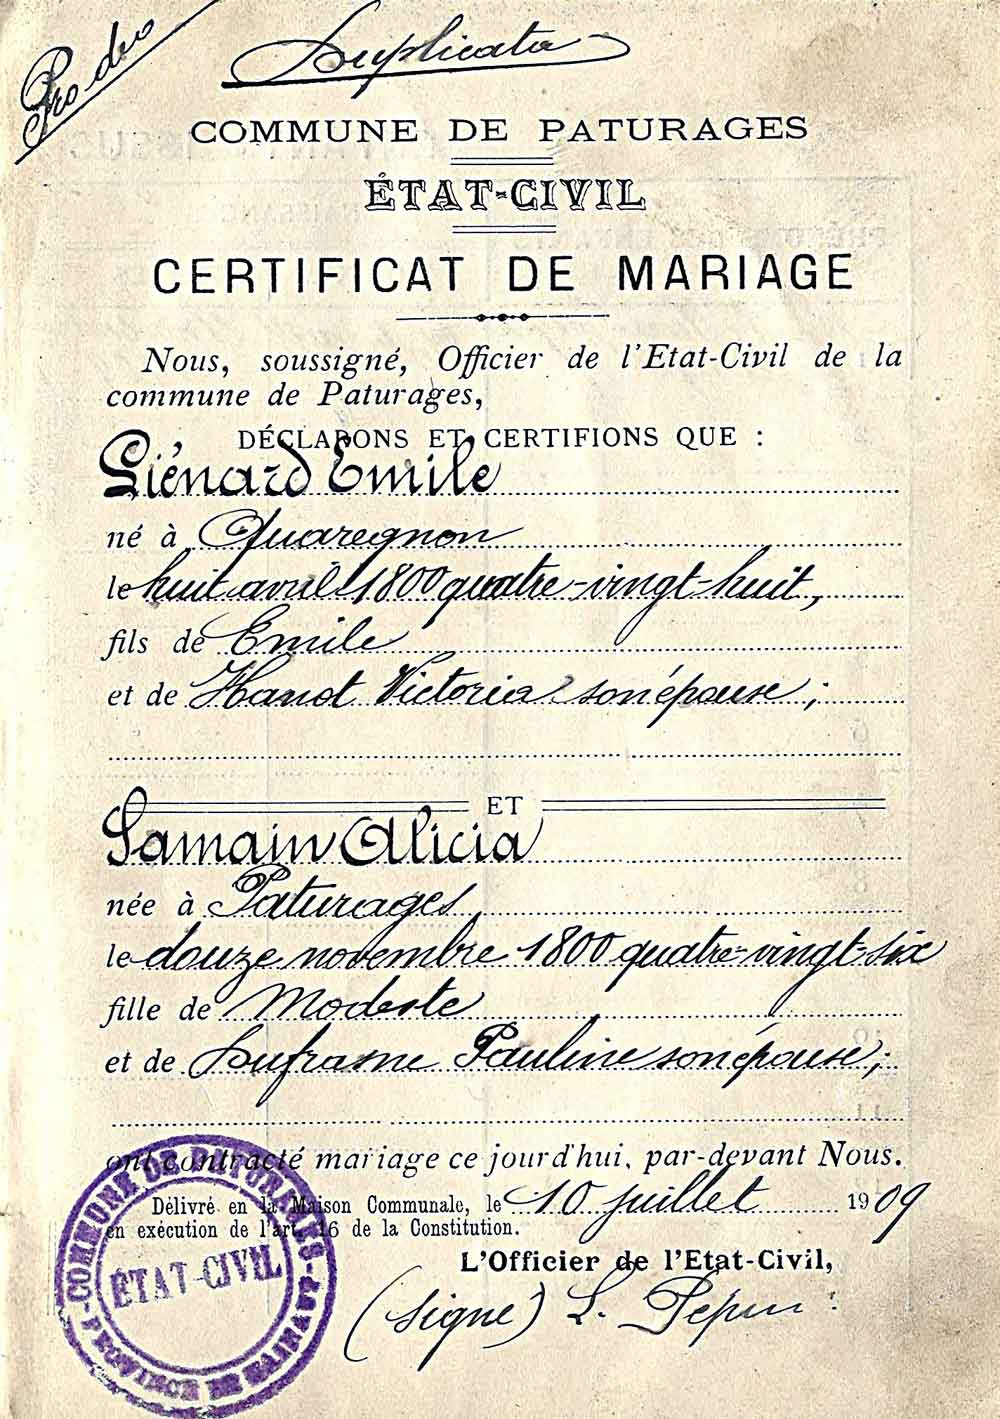 Pro deo
Duplicata
COMMUNE DE PATURAGES
ÉTAT-CIVIL
CERTIFICAT DE MARIAGE
Nous, soussigné, Officier de l'Etat-Civil de la
commune de Paturages,
DÉCLARONS ET CERTIFIONS QUE :
Liénard Emile
né à Quaregnon
le huit avril 1800 quatre-vingt-huit,
fils de Emile
et de Hanot Victoria son épouse ;
ET
Samain Alicia
née à Paturages
le douze novembre 1800 quatre-vingt-six
fille de Modeste
et de Dufrasne Pauline son épouse ;
ont contracté mariage ce jourd'hui, par-devant Nous.
Délivré en la Maison Communale, le 10 juillet 1909
en exécution de l'art. 16 de la Constitution.
L'Officier de l'Etat-Civil,
(signé) L. Pepin
COMMUNE DE PATURAGES
ÉTAT-CIVIL
PROVINCE DE HAINAUT